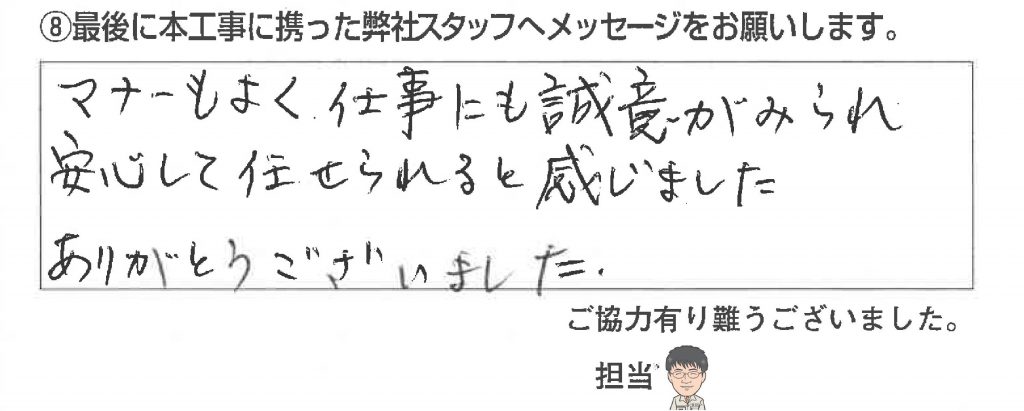 ⑧最後に本工事に携った弊社スタッフへメッセージをお願いします。
マナーもよく仕事にも誠意がみられ
安心して任せられると感じました
ありがとうございました.
ご協力有り難うございました。
担当